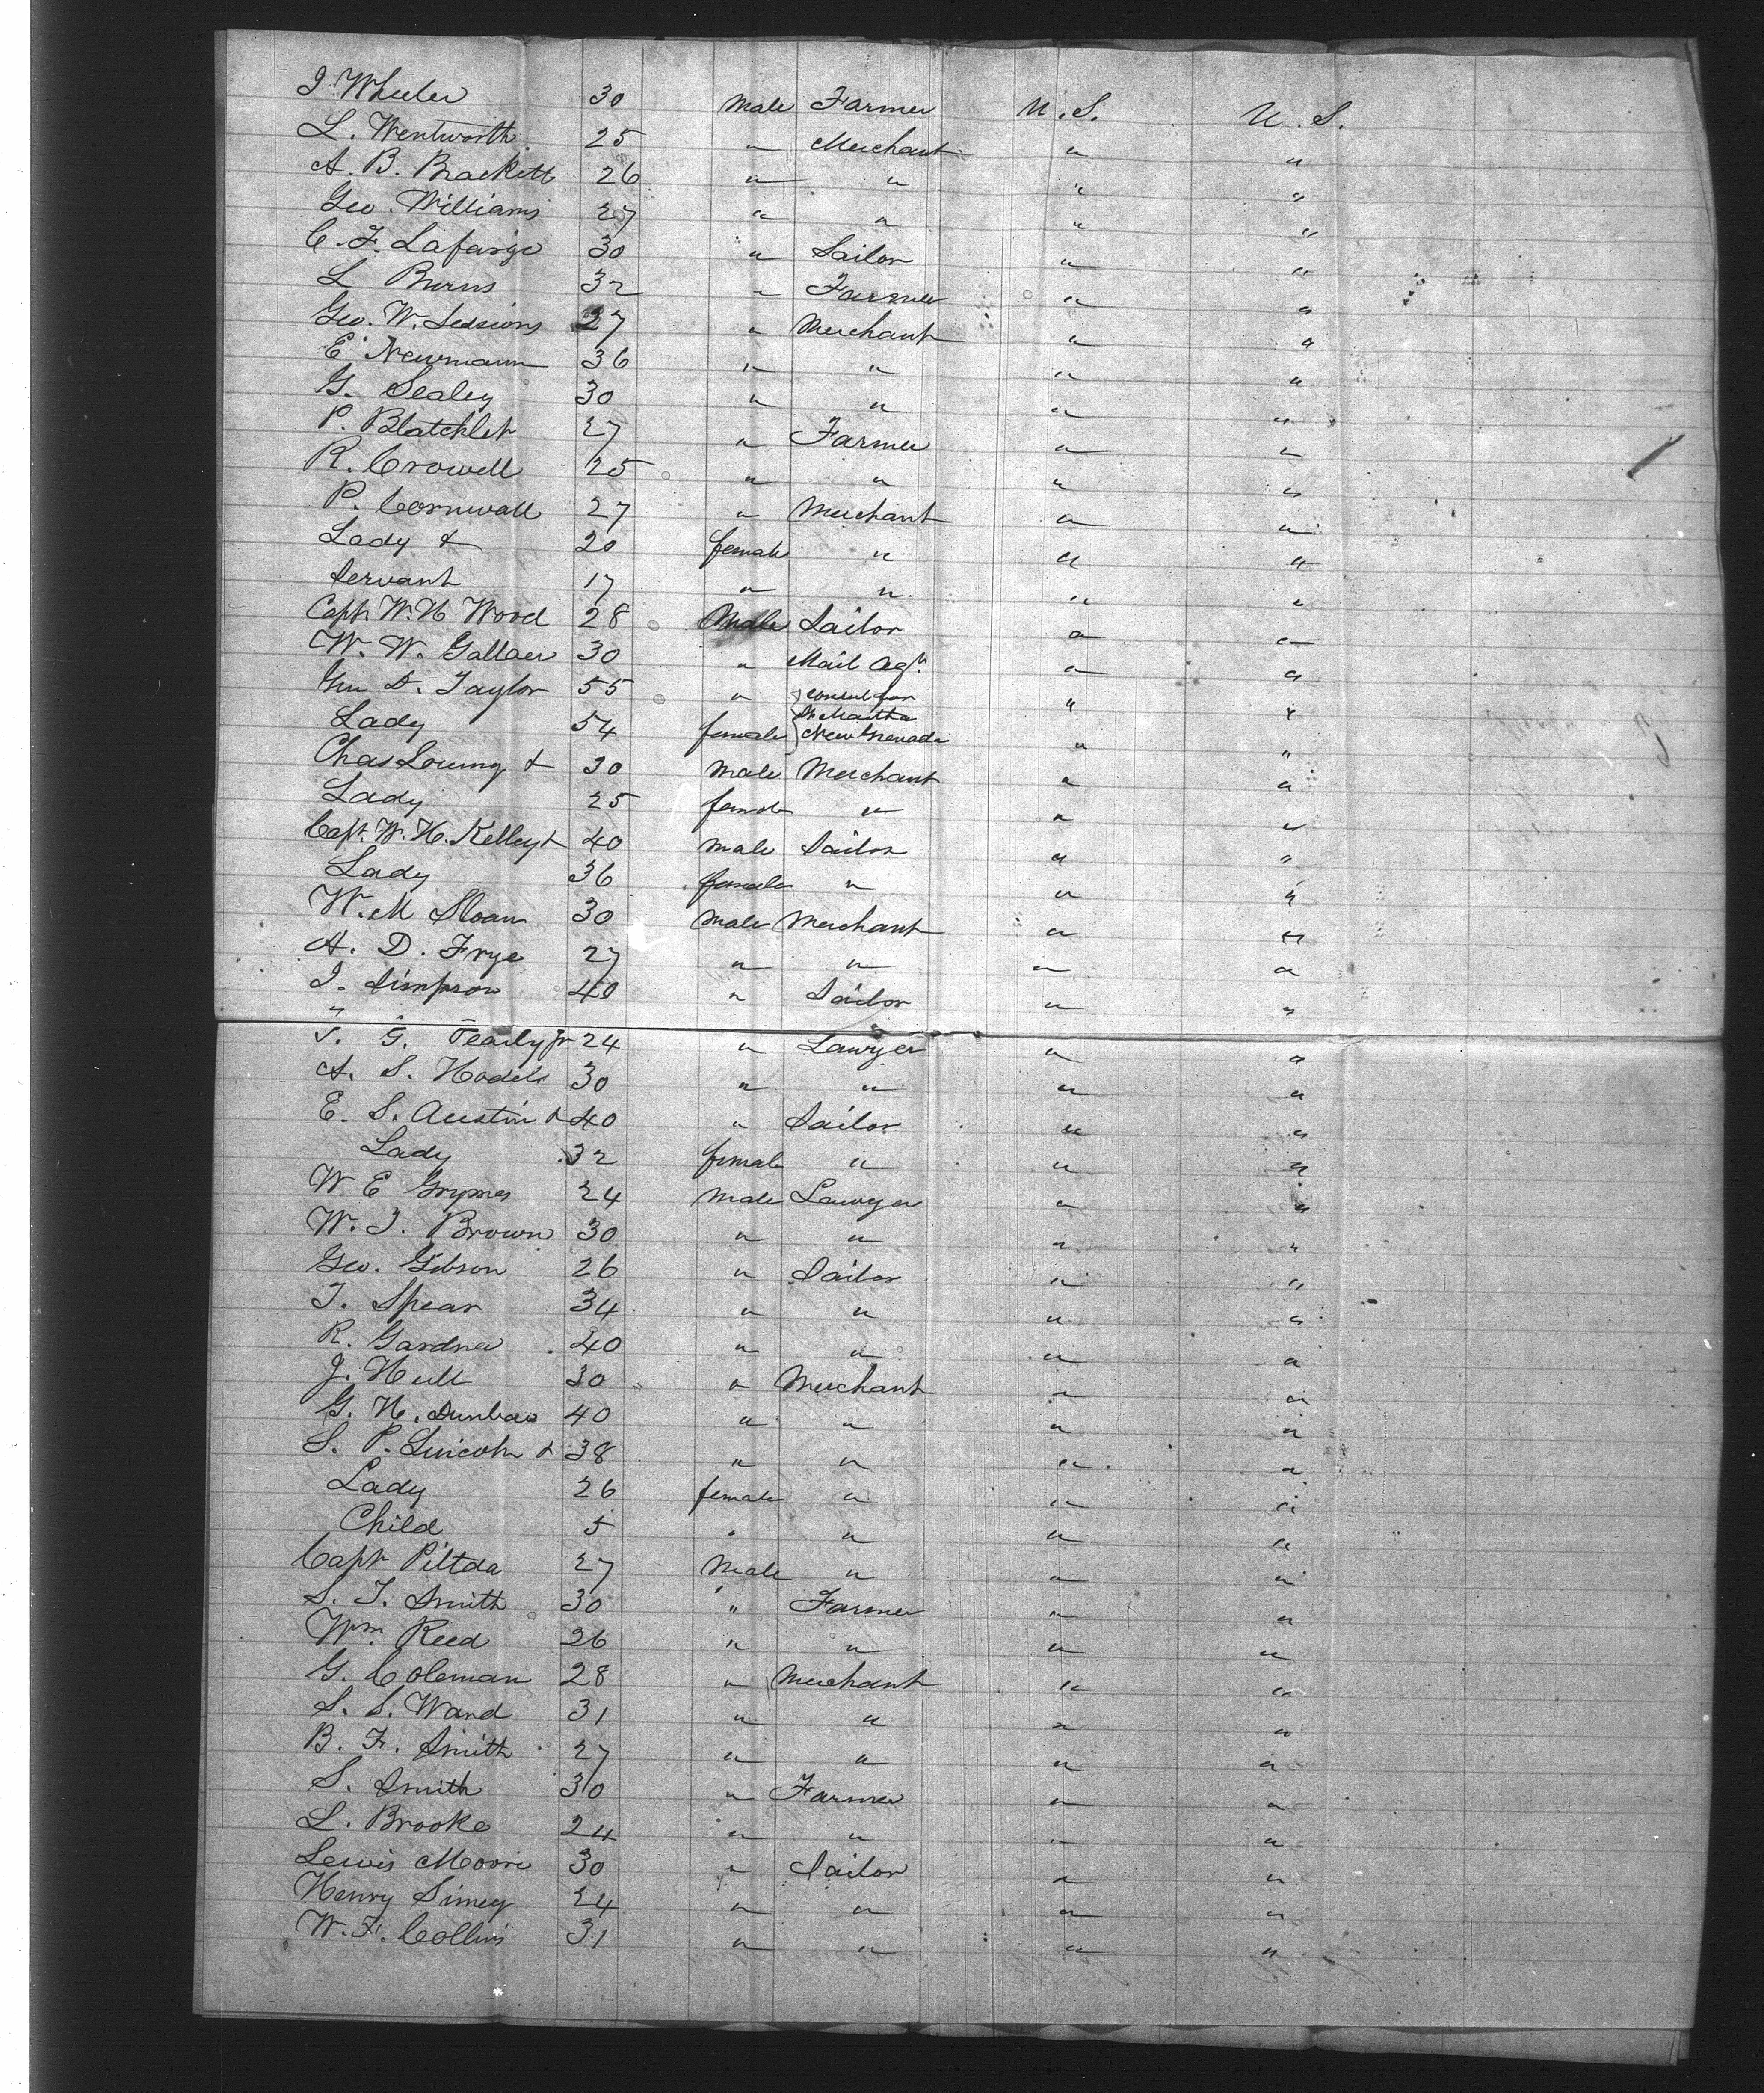 J Wheeler 30 male Farmer U.S. U.S.
L. Wentworth 25 " Merchant " "
A. B. Brackett 26 " " " "
Geo. Williams 27 " " " "
C. F. Lafarge 30 " Sailor " "
L Burns 32 " Farmer " "
Geo. W. Sessions 27 " Merchant " "
E. Newmann 36 " " " "
G. Sealey 30 " " " "
P. Blatchler 27 " Farmer " "
R. Crowell 25 " " " "
P. Cornwall 27 " Merchant " "
Lady & 20 female " " "
Servant 17 " " " "
Capt W. H Wood 28 Male Sailor " "
W. W. Gallaer 30 " Mail Agt. " "
D. Taylor 55 " consul for " "
St Martha
Lady 54 female New Grenada " "
Chas Loring & 30 male Merchant " "
Lady 25 female " " "
Capt. W. H. Kelley & 40 male Sailor " "
Lady 36 female " " "
W. M Sloan 30 male Merchant " "
A. D. Frye 27 " " " "
J. Simpson 40 " Sailor " "
G. jr 24 " Lawyer " "
A. S. 30 " " " "
E. S. Austin & 40 " Sailor " "
Lady 32 female " " "
W E Grymes 24 male Lawyer " "
W. J. Brown 30 " " " "
Geo. Gibson 26 " Sailor " "
T. Spear 34 " " " "
R. Gardner 40 " " " "
J. Hull 30 " Merchant " "
G. H. Dunbar 40 " " " "
S. P. Lincoln & 38 " " " "
Lady 26 female " " "
Child 5 " " " "
Capt 27 Male " " "
S. T. Smith 30 " Farmer " "
Wm. Reed 26 " " " "
G. Coleman 28 " Merchant " "
S. S. Ward 31 " " " "
B. F. Smith 27 " " " "
S. Smith 30 " Farmer " "
L. Brooke 24 " " " "
Lewis Moore 30 " Sailor " "
Henry Simey 24 " " " "
W. F. Collins 31 " " " "